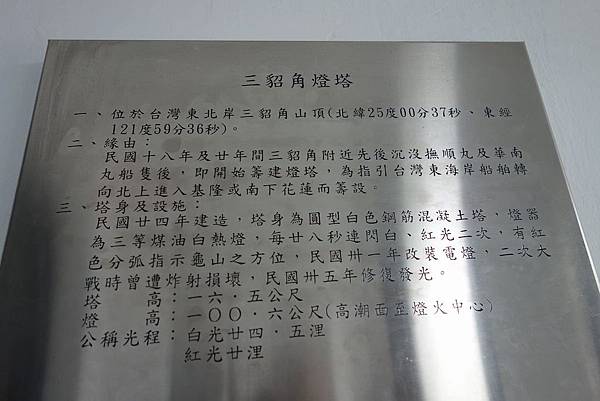 三貂角燈塔
一、位於台灣東北岸三貂角山頂(北緯25度00分37秒、東經
121度59分36秒)。
二、緣由：
民國十八年及廿年間三貂角附近先後沉沒撫順丸及華南
丸船隻後，即開始籌建燈塔，為指引台灣東海岸船舶轉
向北上進入基隆或南下花蓮而籌設。
三、塔身及設施：
民國廿四年建造，塔身為圓型白色鋼筋混凝土塔，燈器
為三等煤油白熱燈，每廿八秒連閃白、紅光二次，有紅
色分弧指示龜山之方位，民國卅一年改裝電燈，二次大
戰時曾遭炸射損壞，民國卅五年修復發光。
塔　　高：一六．五公尺
燈　　高：一〇〇．六公尺(高潮面至燈火中心)
公稱光程：白光廿四．五浬
紅光廿浬